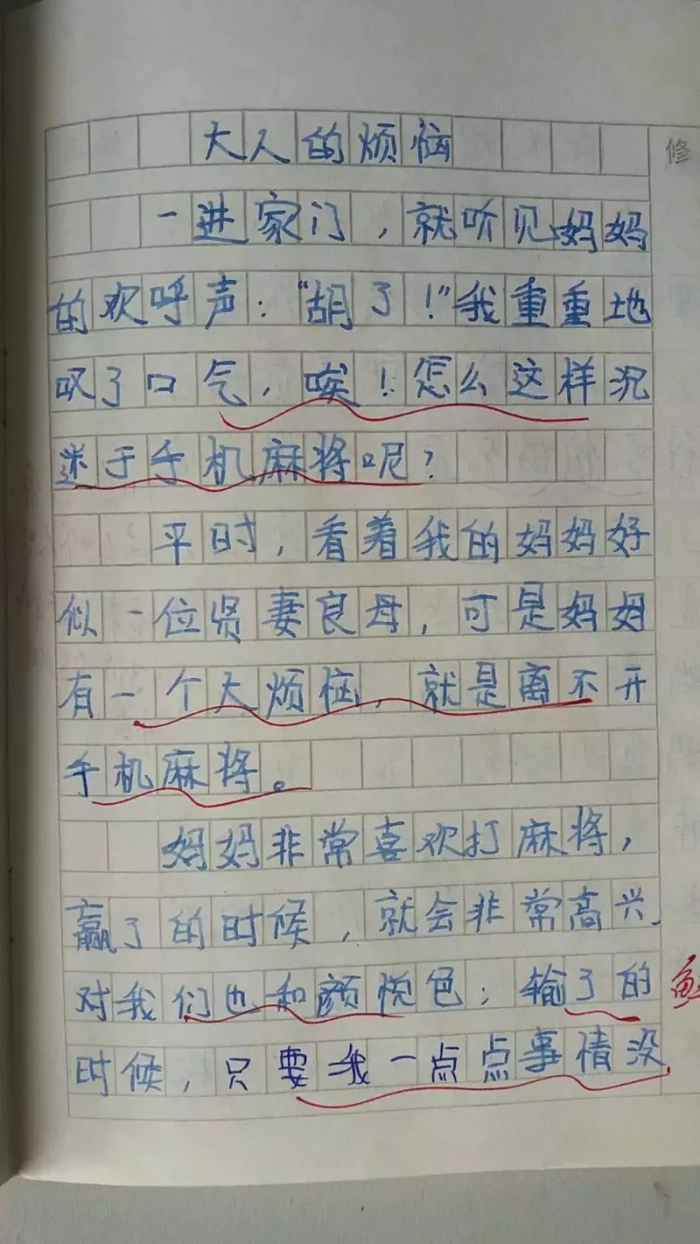 大人的烦恼
修
一进家门，就听见妈妈
的欢呼声：“胡了！”我重重地
叹了口气，唉！怎么这样沉
迷于手机麻将呢？
平时，看着我的妈妈好
似一位贤妻良母，可是妈妈
有一个大烦恼，就是离不开
手机麻将。
妈妈非常喜欢打麻将，
赢了的时候，就会非常高兴
对我们也和颜悦色；输了的
时候，只要我一点点事情没